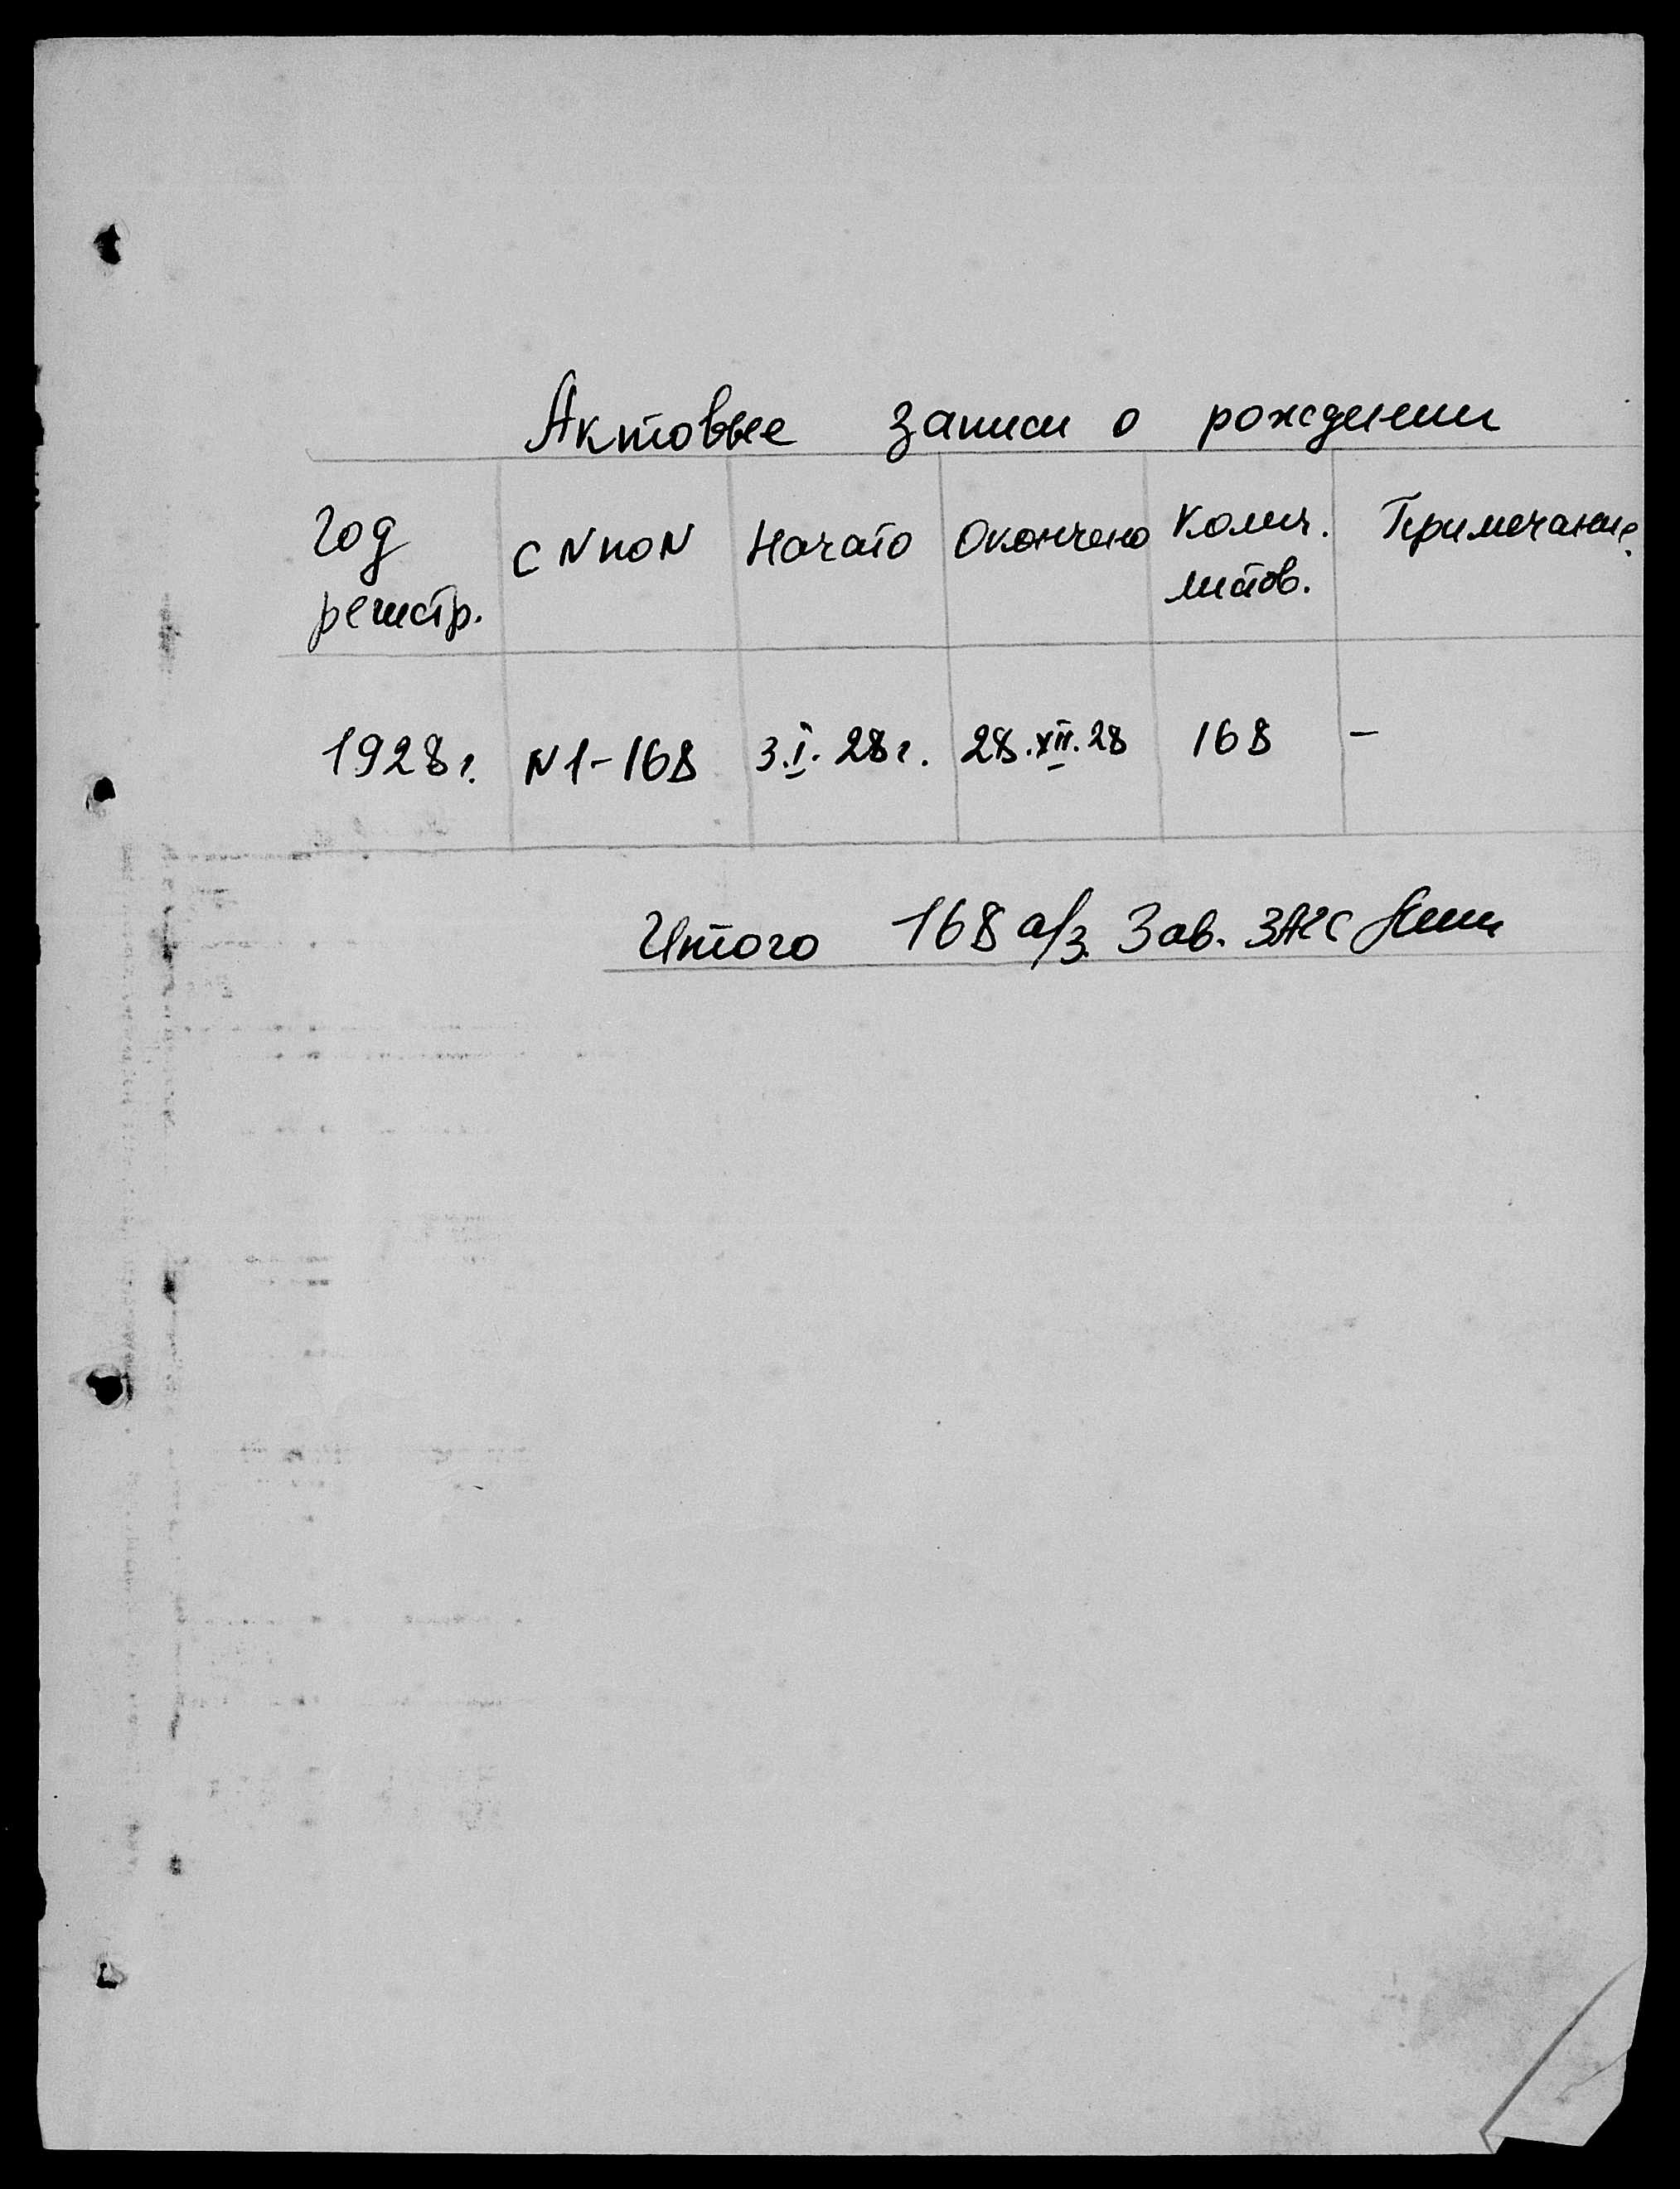 Актовые записи о рождении
Год регистр. С N по N Начато Окончено Колич. листов. Примечание.
1928г. N1-168 3.I.28г. 28.XII.28 168 -
Итого 168 а/з. Зав. ЗАГС